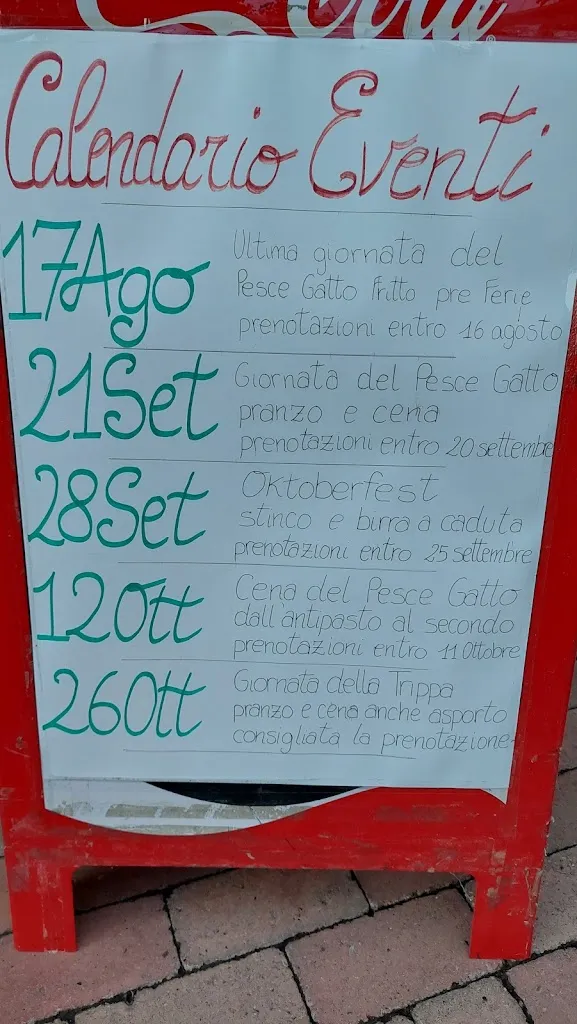 Cola
Calendario Eventi
17 Ago
Ultima giornata del
Pesce Gatto Fritto pre Ferie
prenotazioni entro 16 agosto
21 Set
Giornata del Pesce Gatto
pranzo e cena
prenotazioni entro 20 settembre
28 Set
Oktoberfest
stinco e birra a caduta
prenotazioni entro 25 settembre
12 Ott
Cena del Pesce Gatto
dall'antipasto al secondo
prenotazioni entro 11 Ottobre
26 Ott
Giornata della Trippa
pranzo e cena anche asporto
consigliata la prenotazione